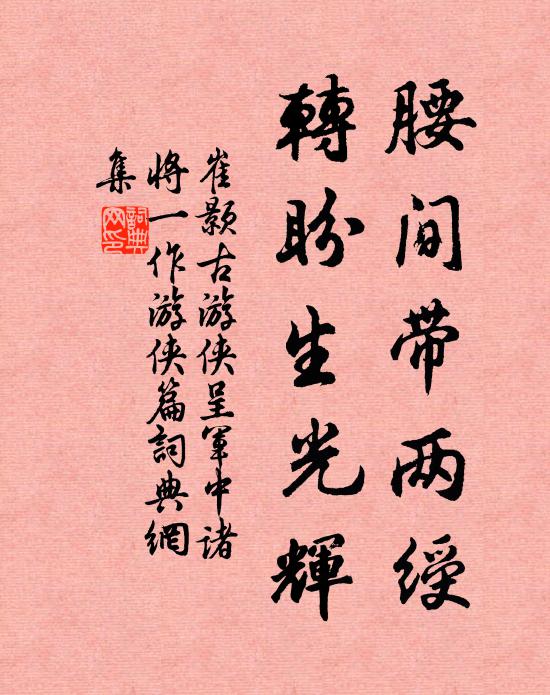 腰间带两绶
轉盼生光輝
崔颢古游俠呈軍中诸
将一作游俠篇詞典網
集
詞典
网印